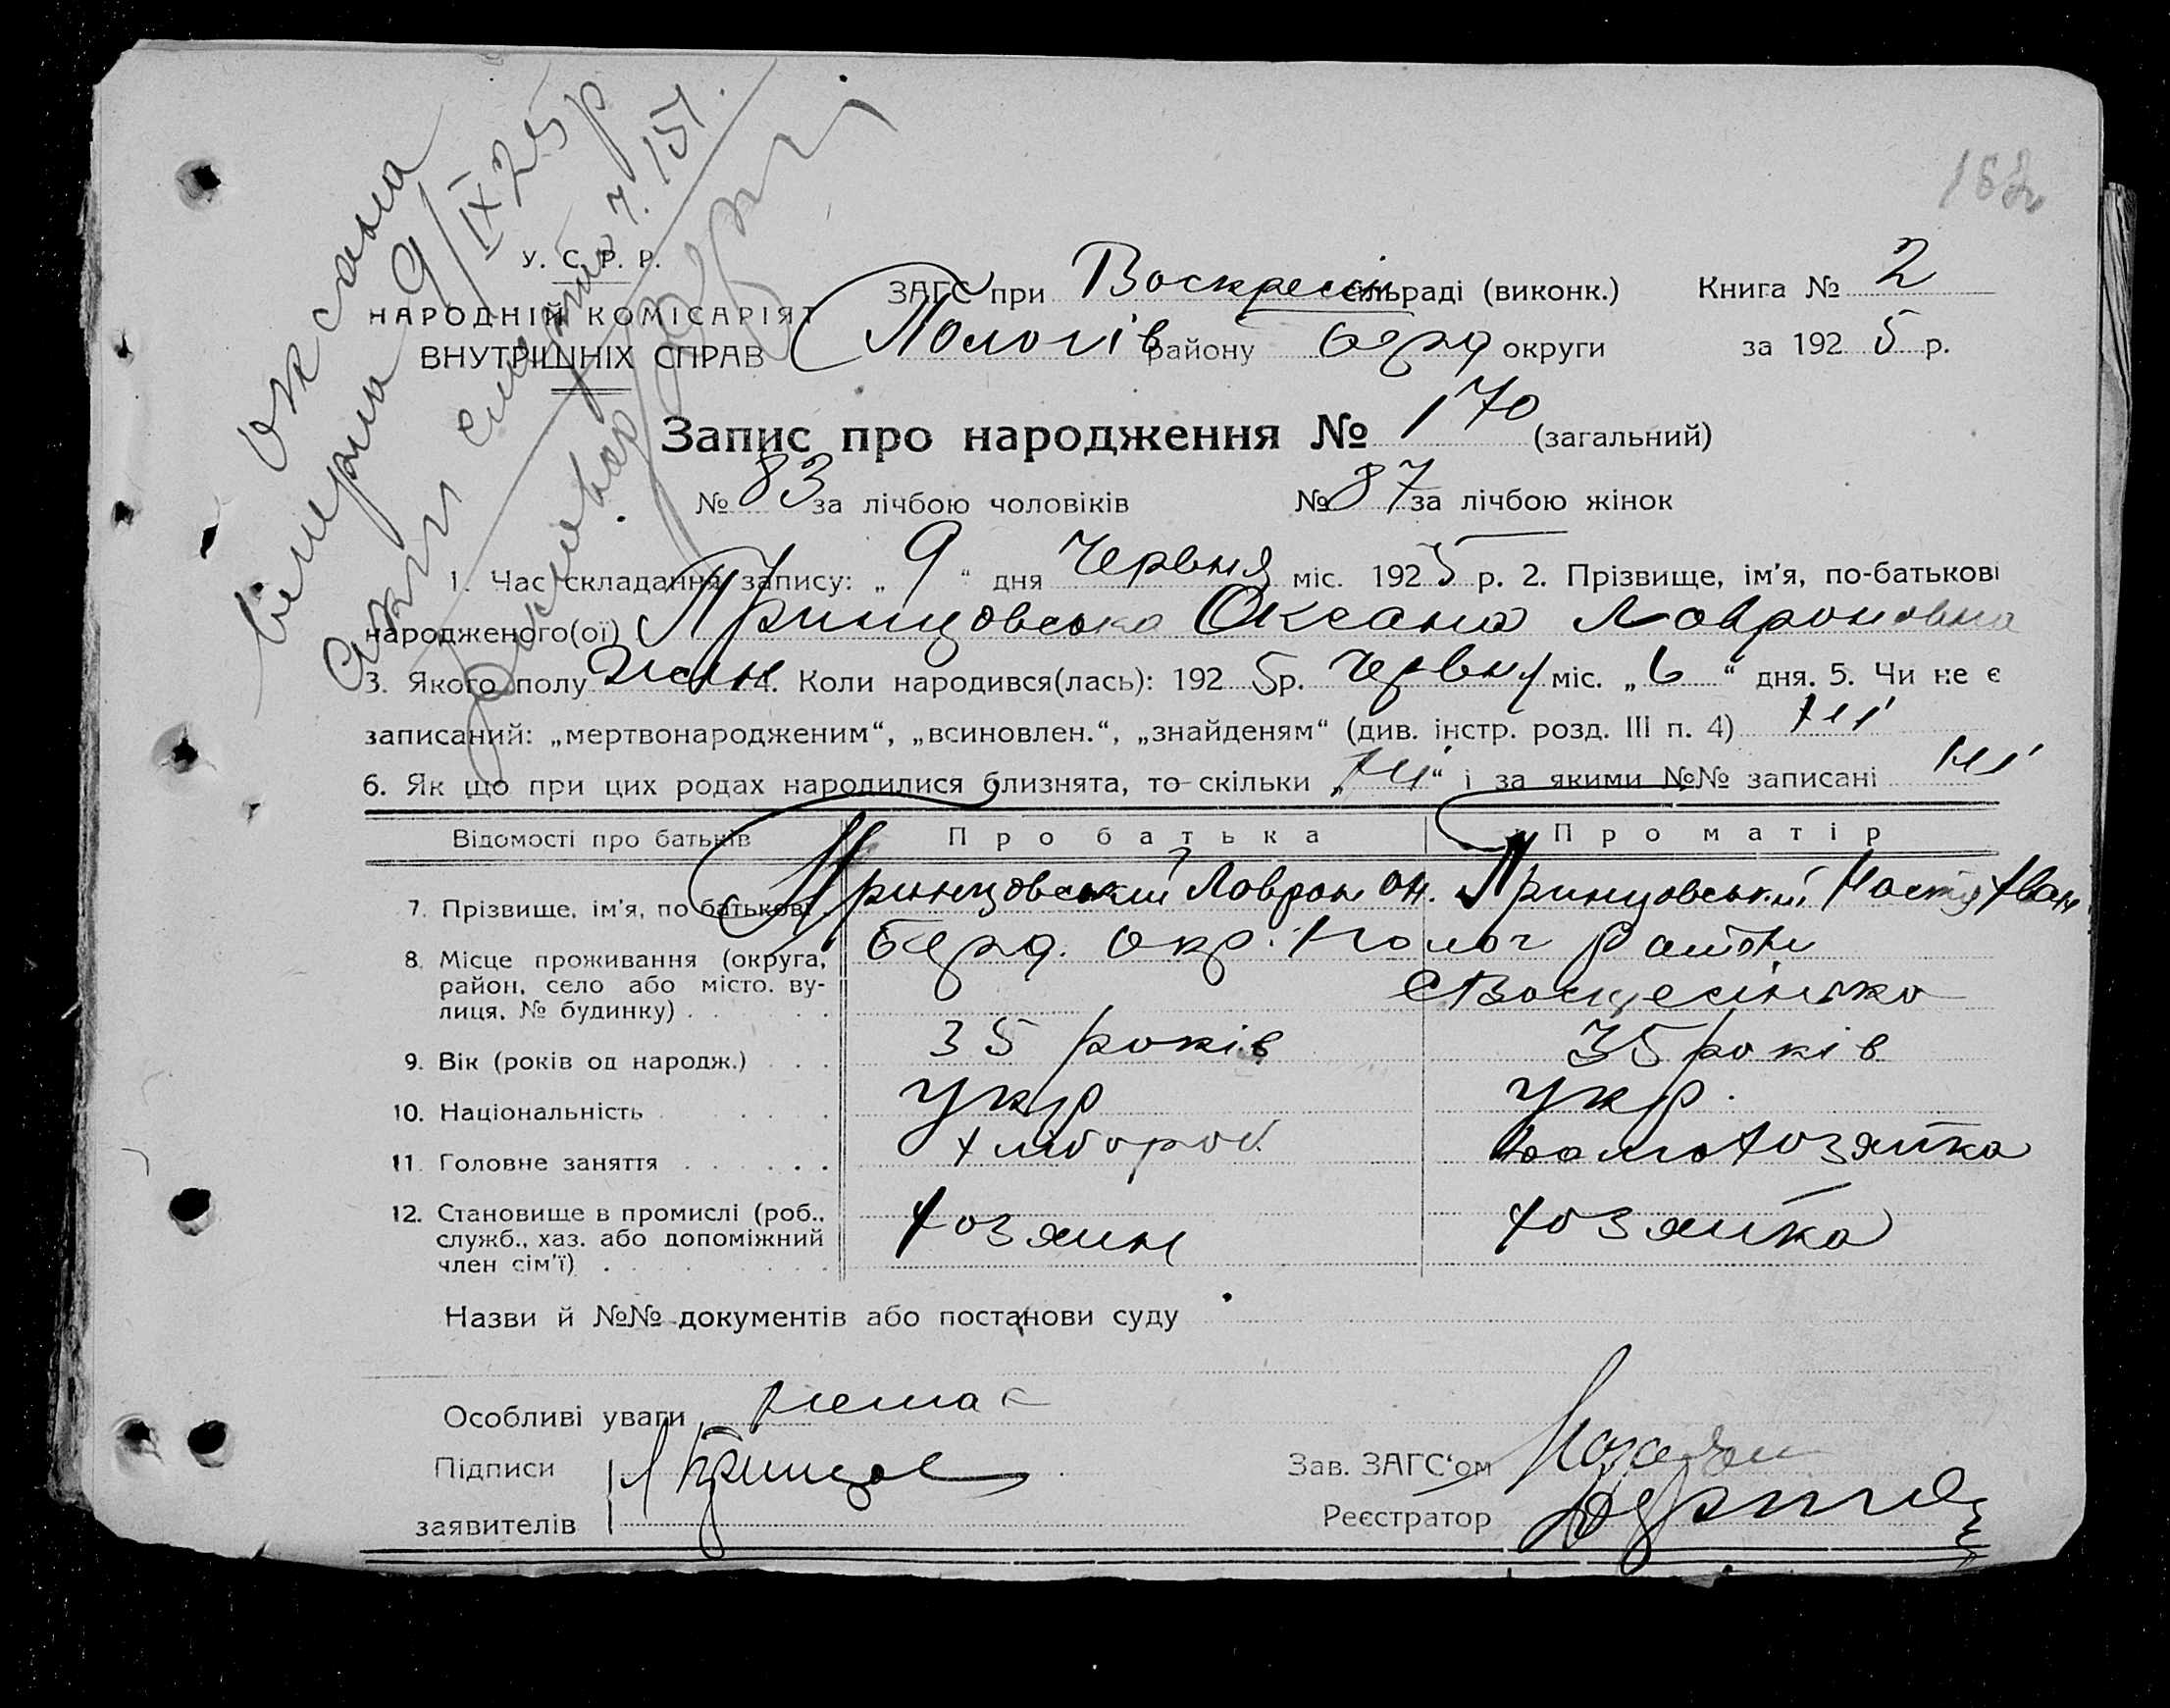 Оксана
вмерла 9/IX 25 р
акт смерти ч. 151.
168
У. С. Р. Р.
НАРОДНІЙ КОМІСАРІЯТ
ВНУТРІШНІХ СПРАВ
ЗАГС при Воскресен сільраді (виконк.) Книга № 2
Пологів району Берд округи за 1925 р.
Запис про народження № 170 (загальний)
№ 83 за лічбою чоловіків № 87 за лічбою жінок
1. Час складання запису: „ 9 “ дня Червня міс. 1925 р. 2. Прізвище, ім'я, по-батькові
народженого(ої) Принцовська Оксана Лавроновна
3. Якого полу жін 4. Коли народився(лась): 1925 р. Червня міс. „ 6 “ дня. 5. Чи не є
записаний: „мертвонародженим“, „всиновлен.“, „знайденям“ (див. інстр. розд. III п. 4) ні
6. Як що при цих родах народилися близнята, то скільки „ ні “ і за якими №№ записані ні
Відомості про батьків Про батька Про матір
7. Прізвище, ім'я, по батькові Принцовський Лаврон Он. Принцовський Настя Іван
8. Місце проживання (округа, район, село або місто, ву-
лиця, № будинку) Берд. окр. Полог район
с Воскресінька
9. Вік (років од народж.) 35 років 35 років
10. Національність укр укр.
11. Головне заняття хлібороб. домохозяйка
12. Становище в промислі (роб.,
служб., хаз. або допоміжний
член сім'ї) хозяин хозяйка
Назви й №№ документів або постанови суду
Особливі уваги немає
Підписи Л Принцов Зав. ЗАГС‘ом
заявителів Реєстратор